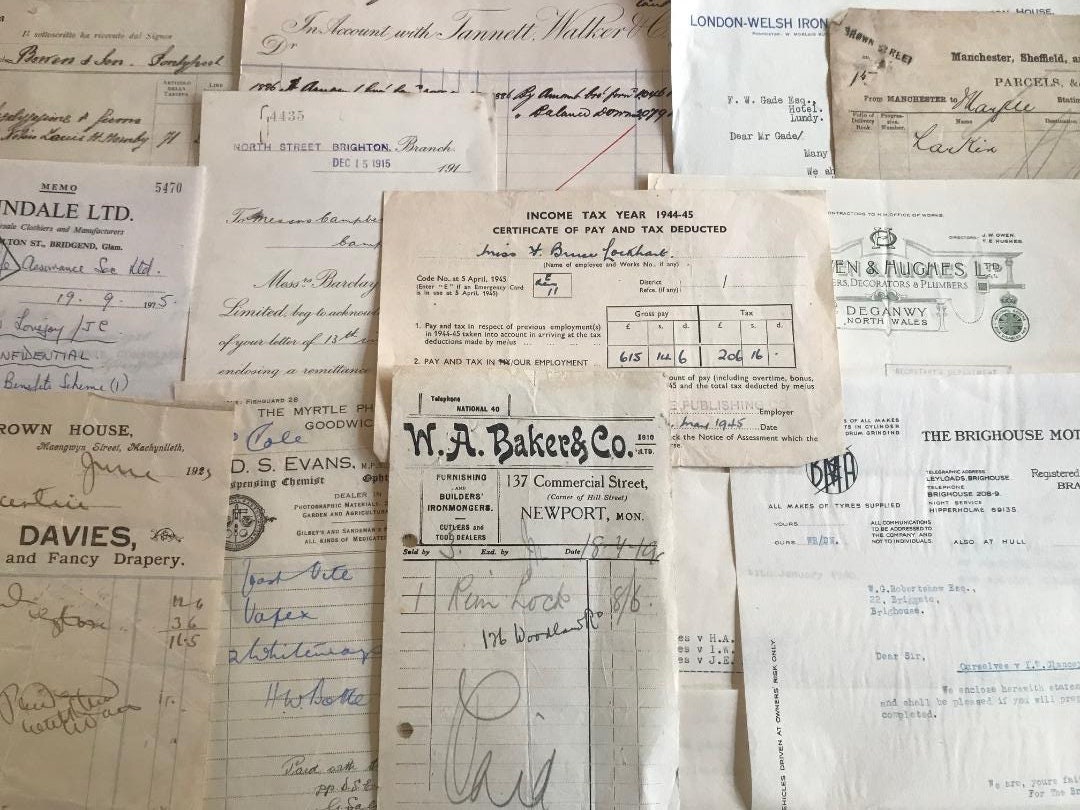 Il sottoscritto ha ricevuto dal Signor
Bowen & Son
In Account with Tannett, Walker & C
Dr
1886
By Amount
Balance Down
LONDON-WELSH IRON
F. W. Gade Esq.,
Hotel.
Lundy.
Dear Mr Gade/
Many
We
HOUSE,
BROWN STREET
15
Manchester, Sheffield, a
PARCELS, &
From MANCHESTER to
Folio of Delivery Book.
Progressive Number.
Name
Destination
Larkin
4435
NORTH STREET BRIGHTON. Branch.
DEC 15 1915
191
To Messrs Campbe
Camp
Mess.rs Barclay
Limited, beg to acknow
of your letter of 13th
enclosing a remittance
MEMO 5470
NDALE LTD.
sale Clothiers and Manufacturers
TON ST., BRIDGEND, Glam.
Assurance Soc Ltd.
19.9.1975.
Lovejoy/JC
NFIDENTIAL
Benefits Scheme (1)
INCOME TAX YEAR 1944-45
CERTIFICATE OF PAY AND TAX DEDUCTED
Miss V. Bruce Lockhart.
(Name of employee and Works No. if any)
Code No. at 5 April, 1945
(Enter "E" if an Emergency Card
is in use at 5 April, 1945)
District
Refce. (if any)
Gross pay Tax
£ s. d. £ s. d.
1. Pay and tax in respect of previous employment(s)
in 1944-45 taken into account in arriving at the tax
deductions made by me/us
2. PAY AND TAX IN MY/OUR EMPLOYMENT 615 14 6 206 16 -
ount of pay (including overtime, bonus,
45 and the total tax deducted by me/us
E PUBLISHING
Employer
1945 Date
ck the Notice of Assessment which the
CONTRACTORS TO H.M. OFFICE OF WORKS.
DIRECTORS: J. W. OWEN.
T. E. HUGHES.
EN & HUGHES, LTD
ERS, DECORATORS & PLUMBERS
DEGANWY
NORTH WALES
SECRETARY'S DEPARTMENT
ROWN HOUSE,
Maengwyn Street, Machynlleth,
June 192
DAVIES,
and Fancy Drapery.
12 6
3 6
FISHGUARD 28
THE MYRTLE PH
GOODWIC
Cole
D. S. EVANS. M.P.S
spensing Chemist Opht
DEALER IN
PHOTOGRAPHIC MATERIALS,
GARDEN AND AGRICULTUR
GILBEY'S AND SANDEMAN'S
ALL KINDS OF MEDICATE
Yeast Vite
Vapex
Whiteways
H W Botte
Paid with
Telephone
NATIONAL 40
W. A. Baker & Co.
1910
LTD.
FURNISHING
AND
BUILDERS'
IRONMONGERS.
CUTLERS and
TOOL DEALERS
137 Commercial Street,
(Corner of Hill Street)
NEWPORT, MON.
Sold by Exd. by Date 18-4-19
1 Rim Lock 8/6
126 Woodland Rd
Paid
es v H.A.
es v I.W.
es v J.E.
S OF ALL MAKES
TS IN CYLINDER
DRUM GRINDING
THE BRIGHOUSE MOT
BMA
TELEGRAPHIC ADDRESS
LEYLOADS, BRIGHOUSE.
TELEPHONE
BRIGHOUSE 208-9.
NIGHT SERVICE
HIPPERHOLME 69135.
Registered
BRA
ALL MAKES OF TYRES SUPPLIED
YOURS
OURS WR/DN.
ALL COMMUNICATIONS
TO BE ADDRESSED TO
THE COMPANY AND
NOT TO INDIVIDUALS.
ALSO AT HULL
W.G.Robertshaw Esq.,
22, Briggate,
Brighouse.
Dear Sir,
Ourselves v
We enclose herewith state
and shall be pleased if you will pre
completed.
We are, yours fai
For The Br
VEHICLES DRIVEN AT OWNERS' RISK ONLY